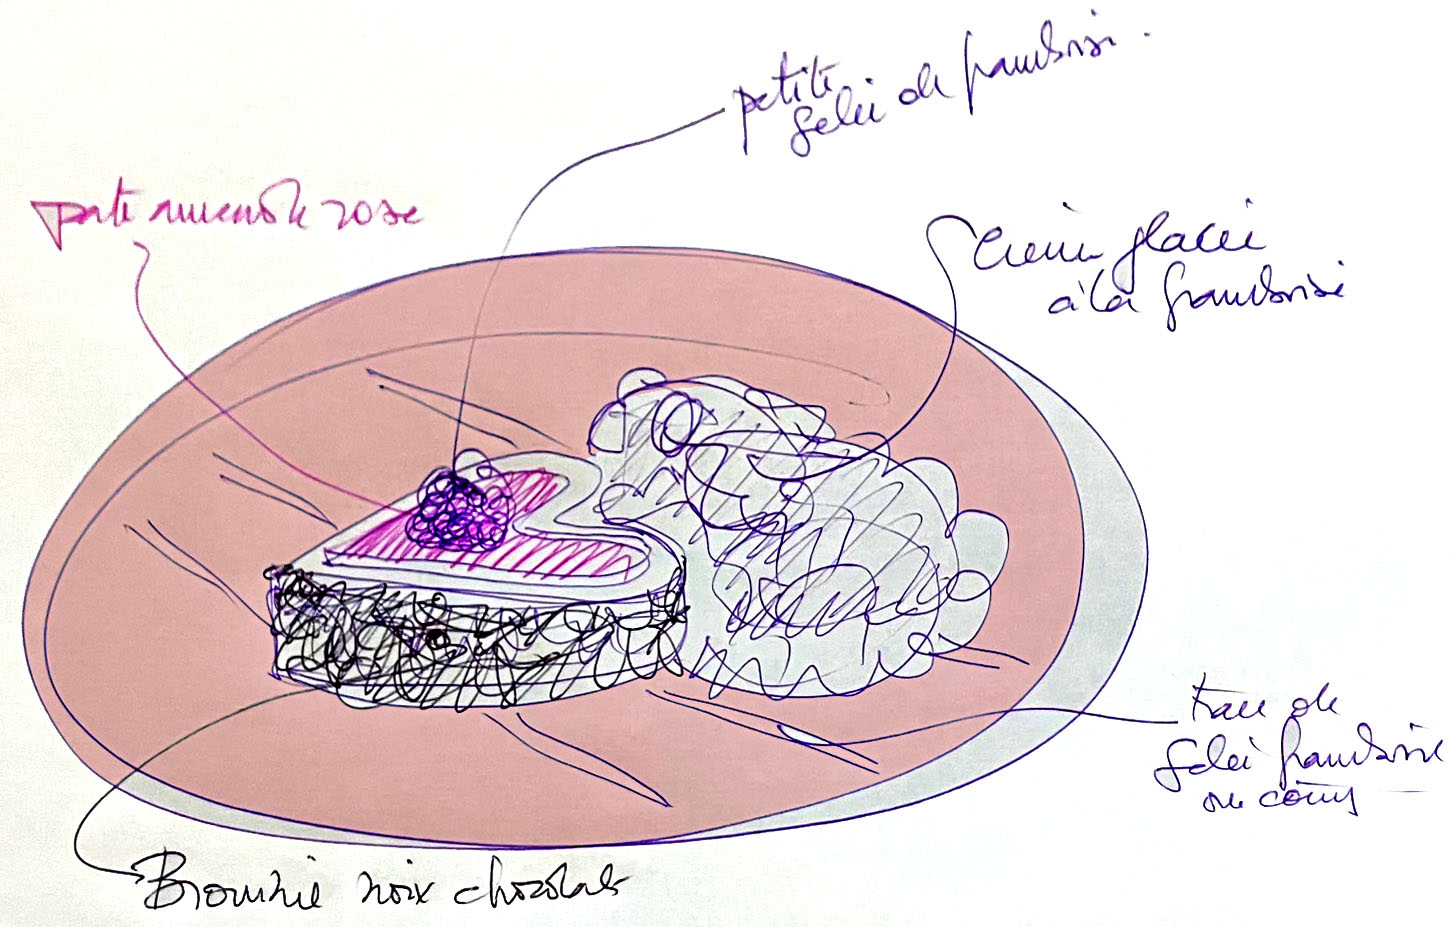 petite
gelée de framboise.
pate amende rose
Crème glacée
à la framboise
trace de
gelée framboise
ou coulis
Brownie noix chocolat